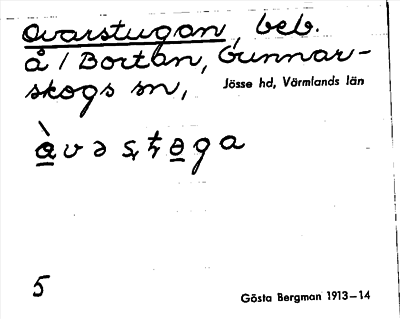 Ovarstugan, beb.
å / Bortan, Gunnar-
skogs sn, Jösse hd, Värmlands län
5
Gösta Bergman 1913–14